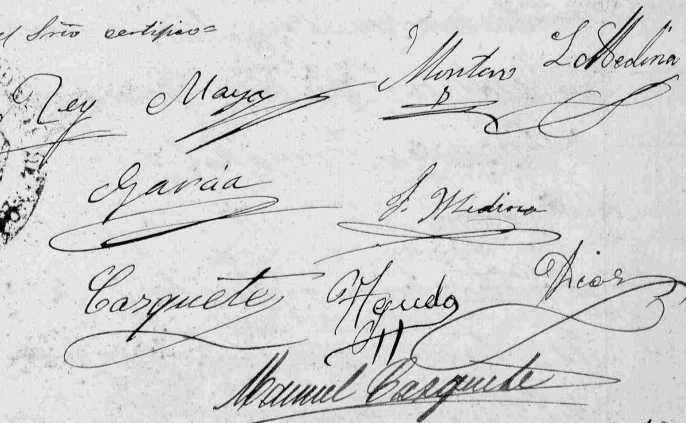 el Srio certifico=
Rey Maya Montero L Medina
Garcia J. Medina
Casquete Agudo Picor
Manuel Casquete